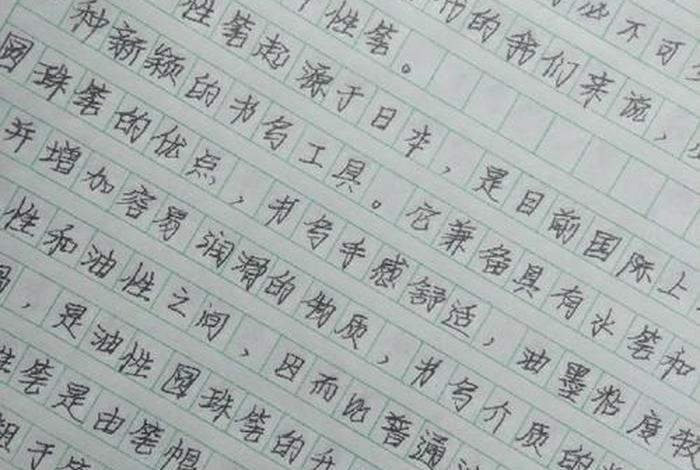 必不可
的我们来说，
性笔。
性笔起源于日本，是目前国际上
种新颖的书写工具。它兼备具有水笔和
圆珠笔的优点，书写手感舒适，油墨粘度较
并增加容易润滑的物质，书写介质的
性和油性之间，因而比普通油
，是油性圆珠笔的升
性笔是由笔帽
于